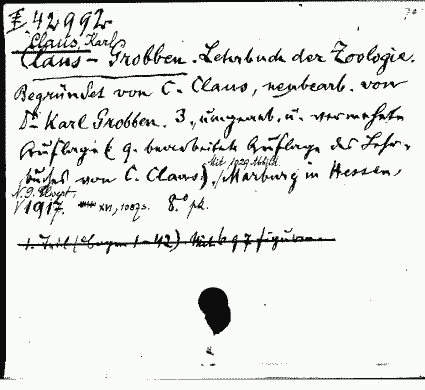 I 42992
Claus, Karl
Claus – Grobben. Lehrbuch der Zoologie.
Begründet von C. Claus, neubearb. von
Dr Karl Grobben. 3., umgearb. u. vermehrte
Auflage (9. bearbeitete Auflage des Lehr-
buches von C. Claus). Mit 1029 Abbild. Marburg in Hessen,
N. G. Elwert,
1917. XVI, 1087 S. 8.°
1. Teil (Bogen 1–42) Mit 697 Figuren.